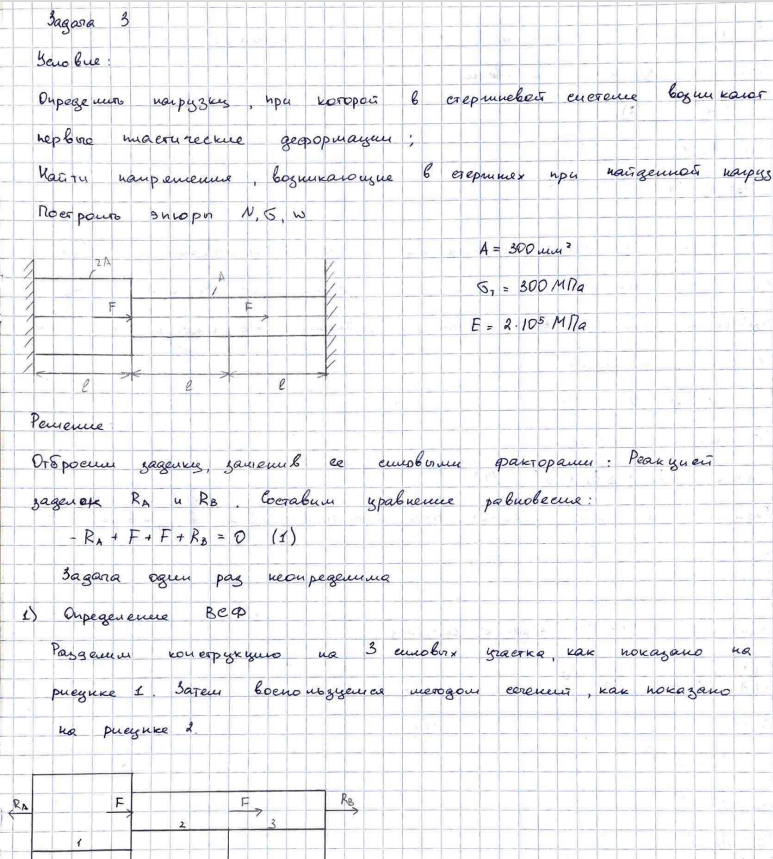 Задача 3
Условие:
Определить нагрузку, при которой в стержневой системе возникают
первые пластические деформации;
Найти напряжения, возникающие в стержнях при найденной нагруз
Построить эпюры N, σ, w
2A
A
A = 300 мм²
σт = 300 МПа
E = 2·10⁵ МПа
F
F
l
l
l
Решение
Отбросим заделки, заменив ее силовыми факторами: Реакцией
заделок RA и RB. Составим уравнение равновесия:
- RA + F + F + RB = 0 (1)
Задача один раз неопределима
1) Определение ВСФ
Разделим конструкцию на 3 силовых участка, как показано на
рисунке 1. Затем воспользуемся методом сечений, как показано
на рисунке 2.
RA
F
F
RB
1
2
3